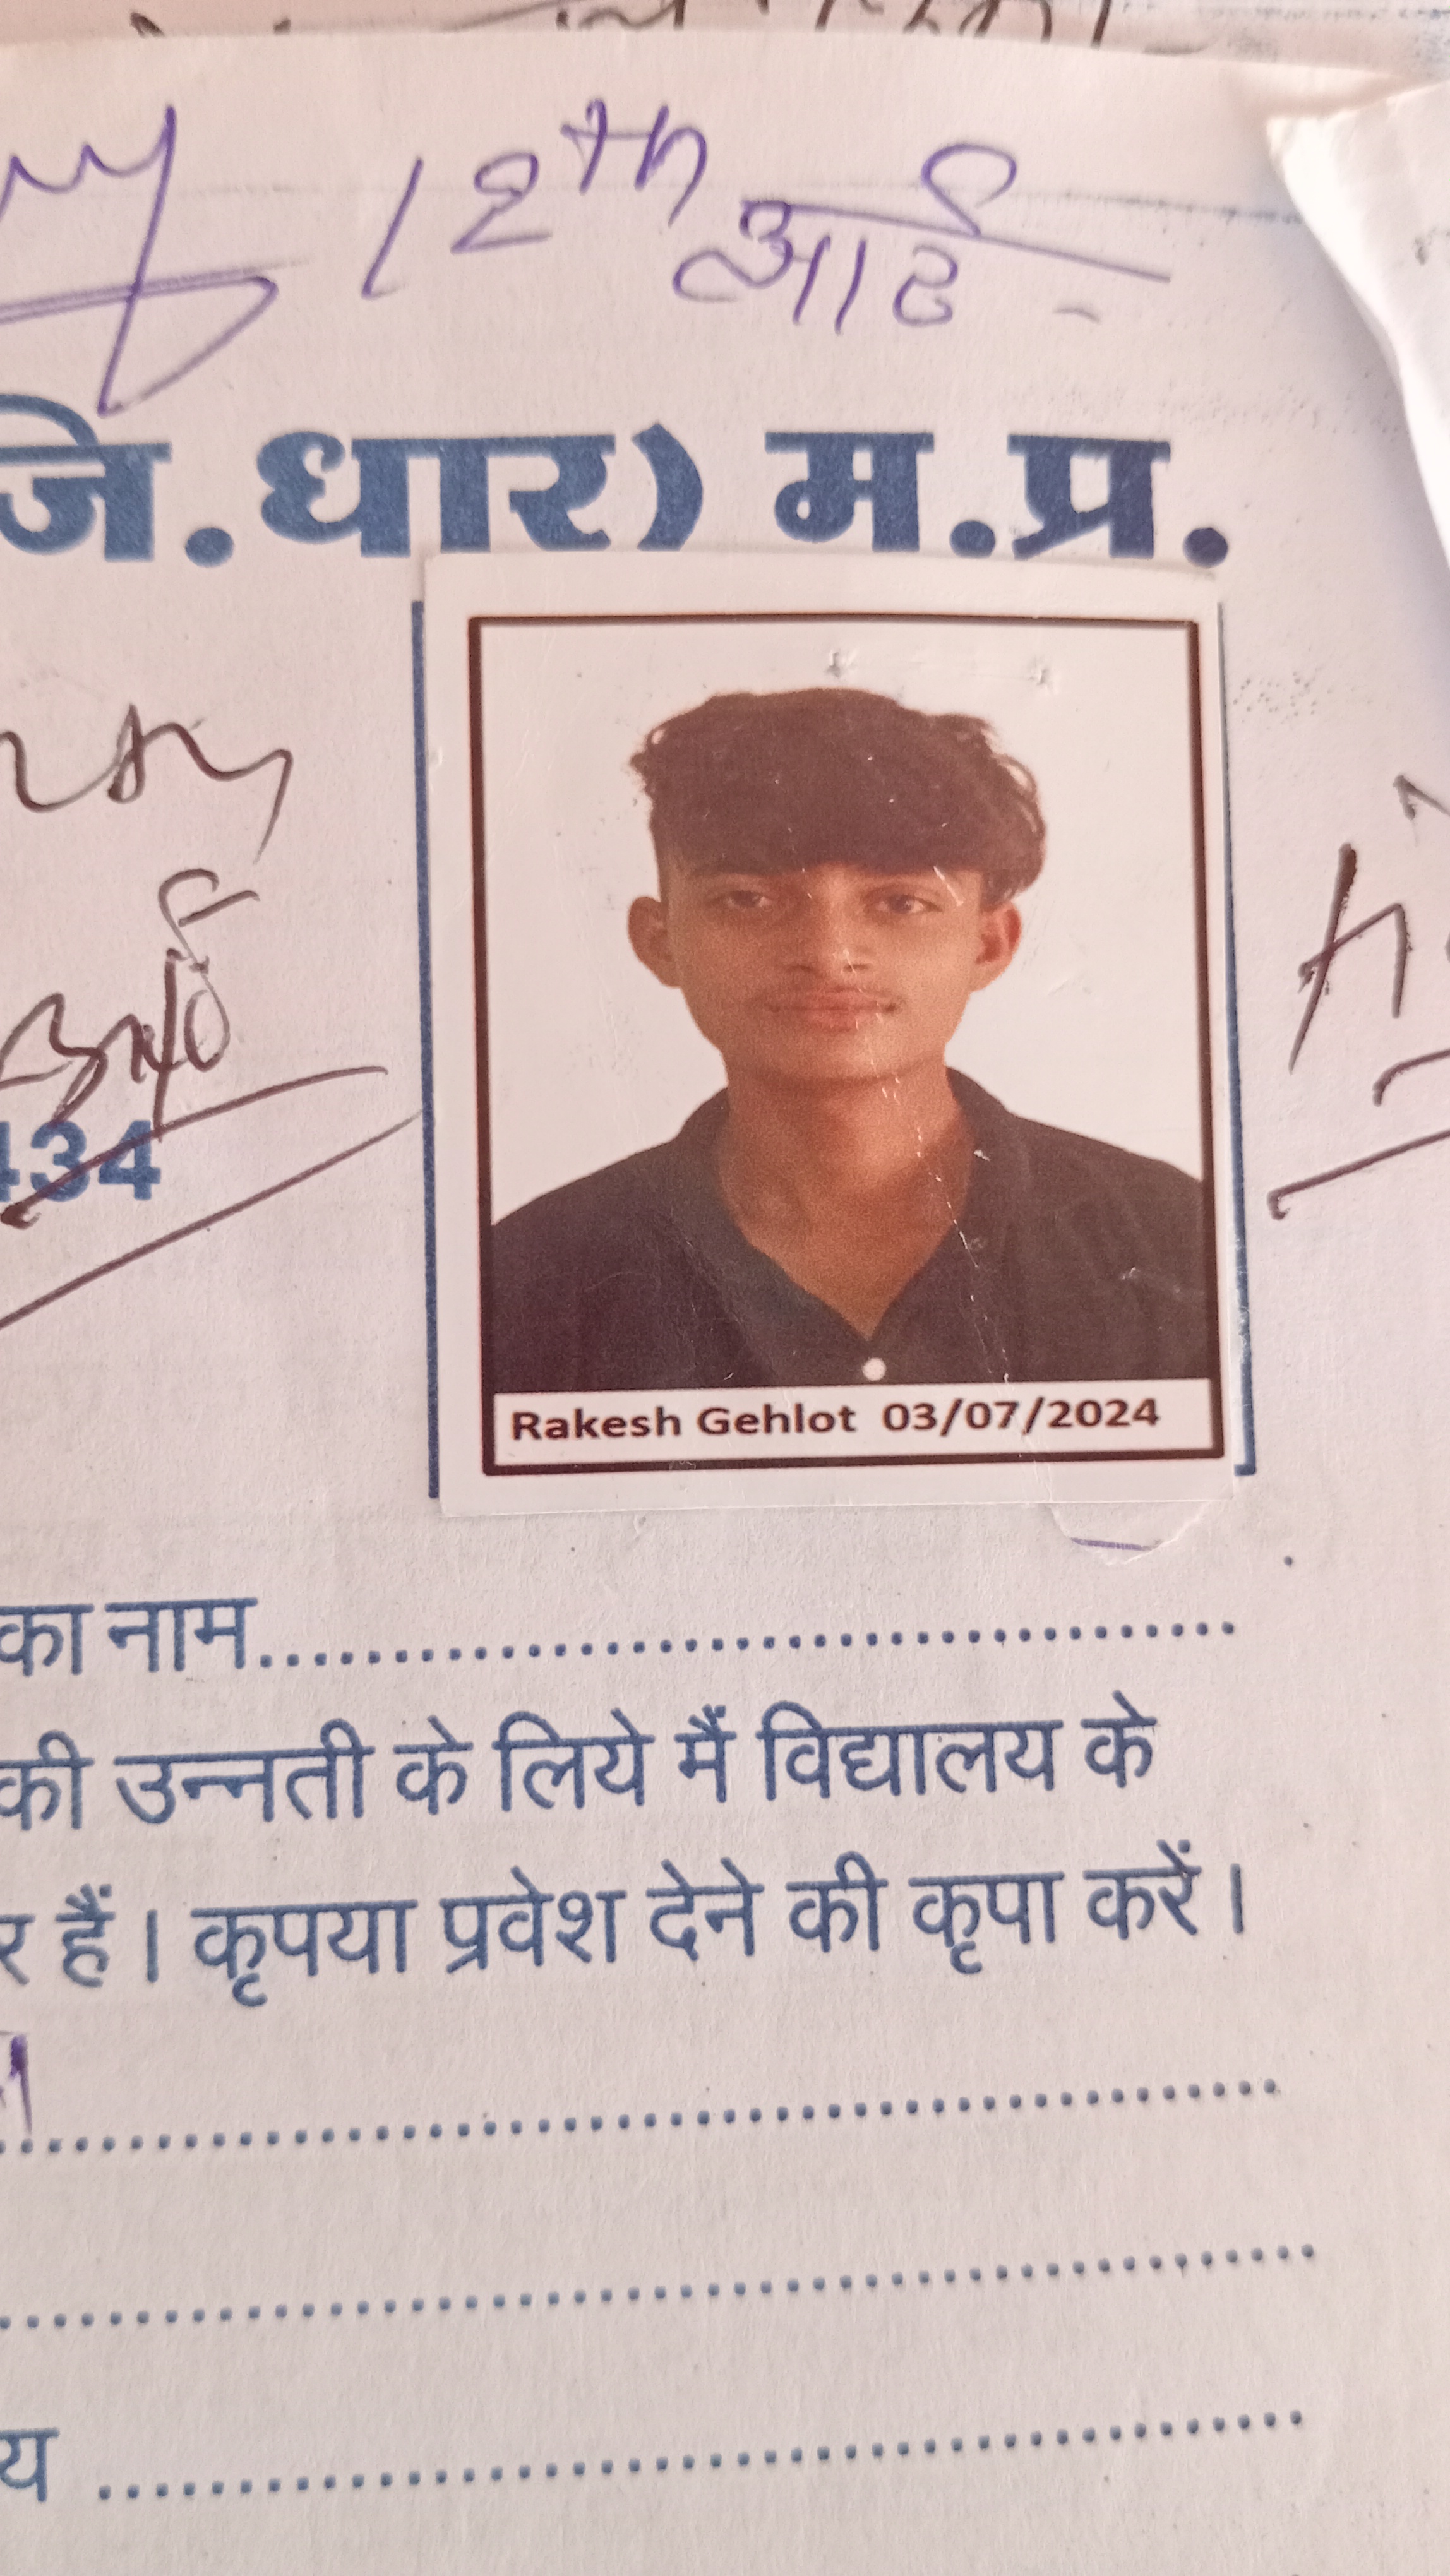 12th
आई
जि.धार) म.प्र.
434
Rakesh Gehlot 03/07/2024
का नाम........................................
की उन्नती के लिये मैं विद्यालय के
र हैं। कृपया प्रवेश देने की कृपा करें।
य ........................................